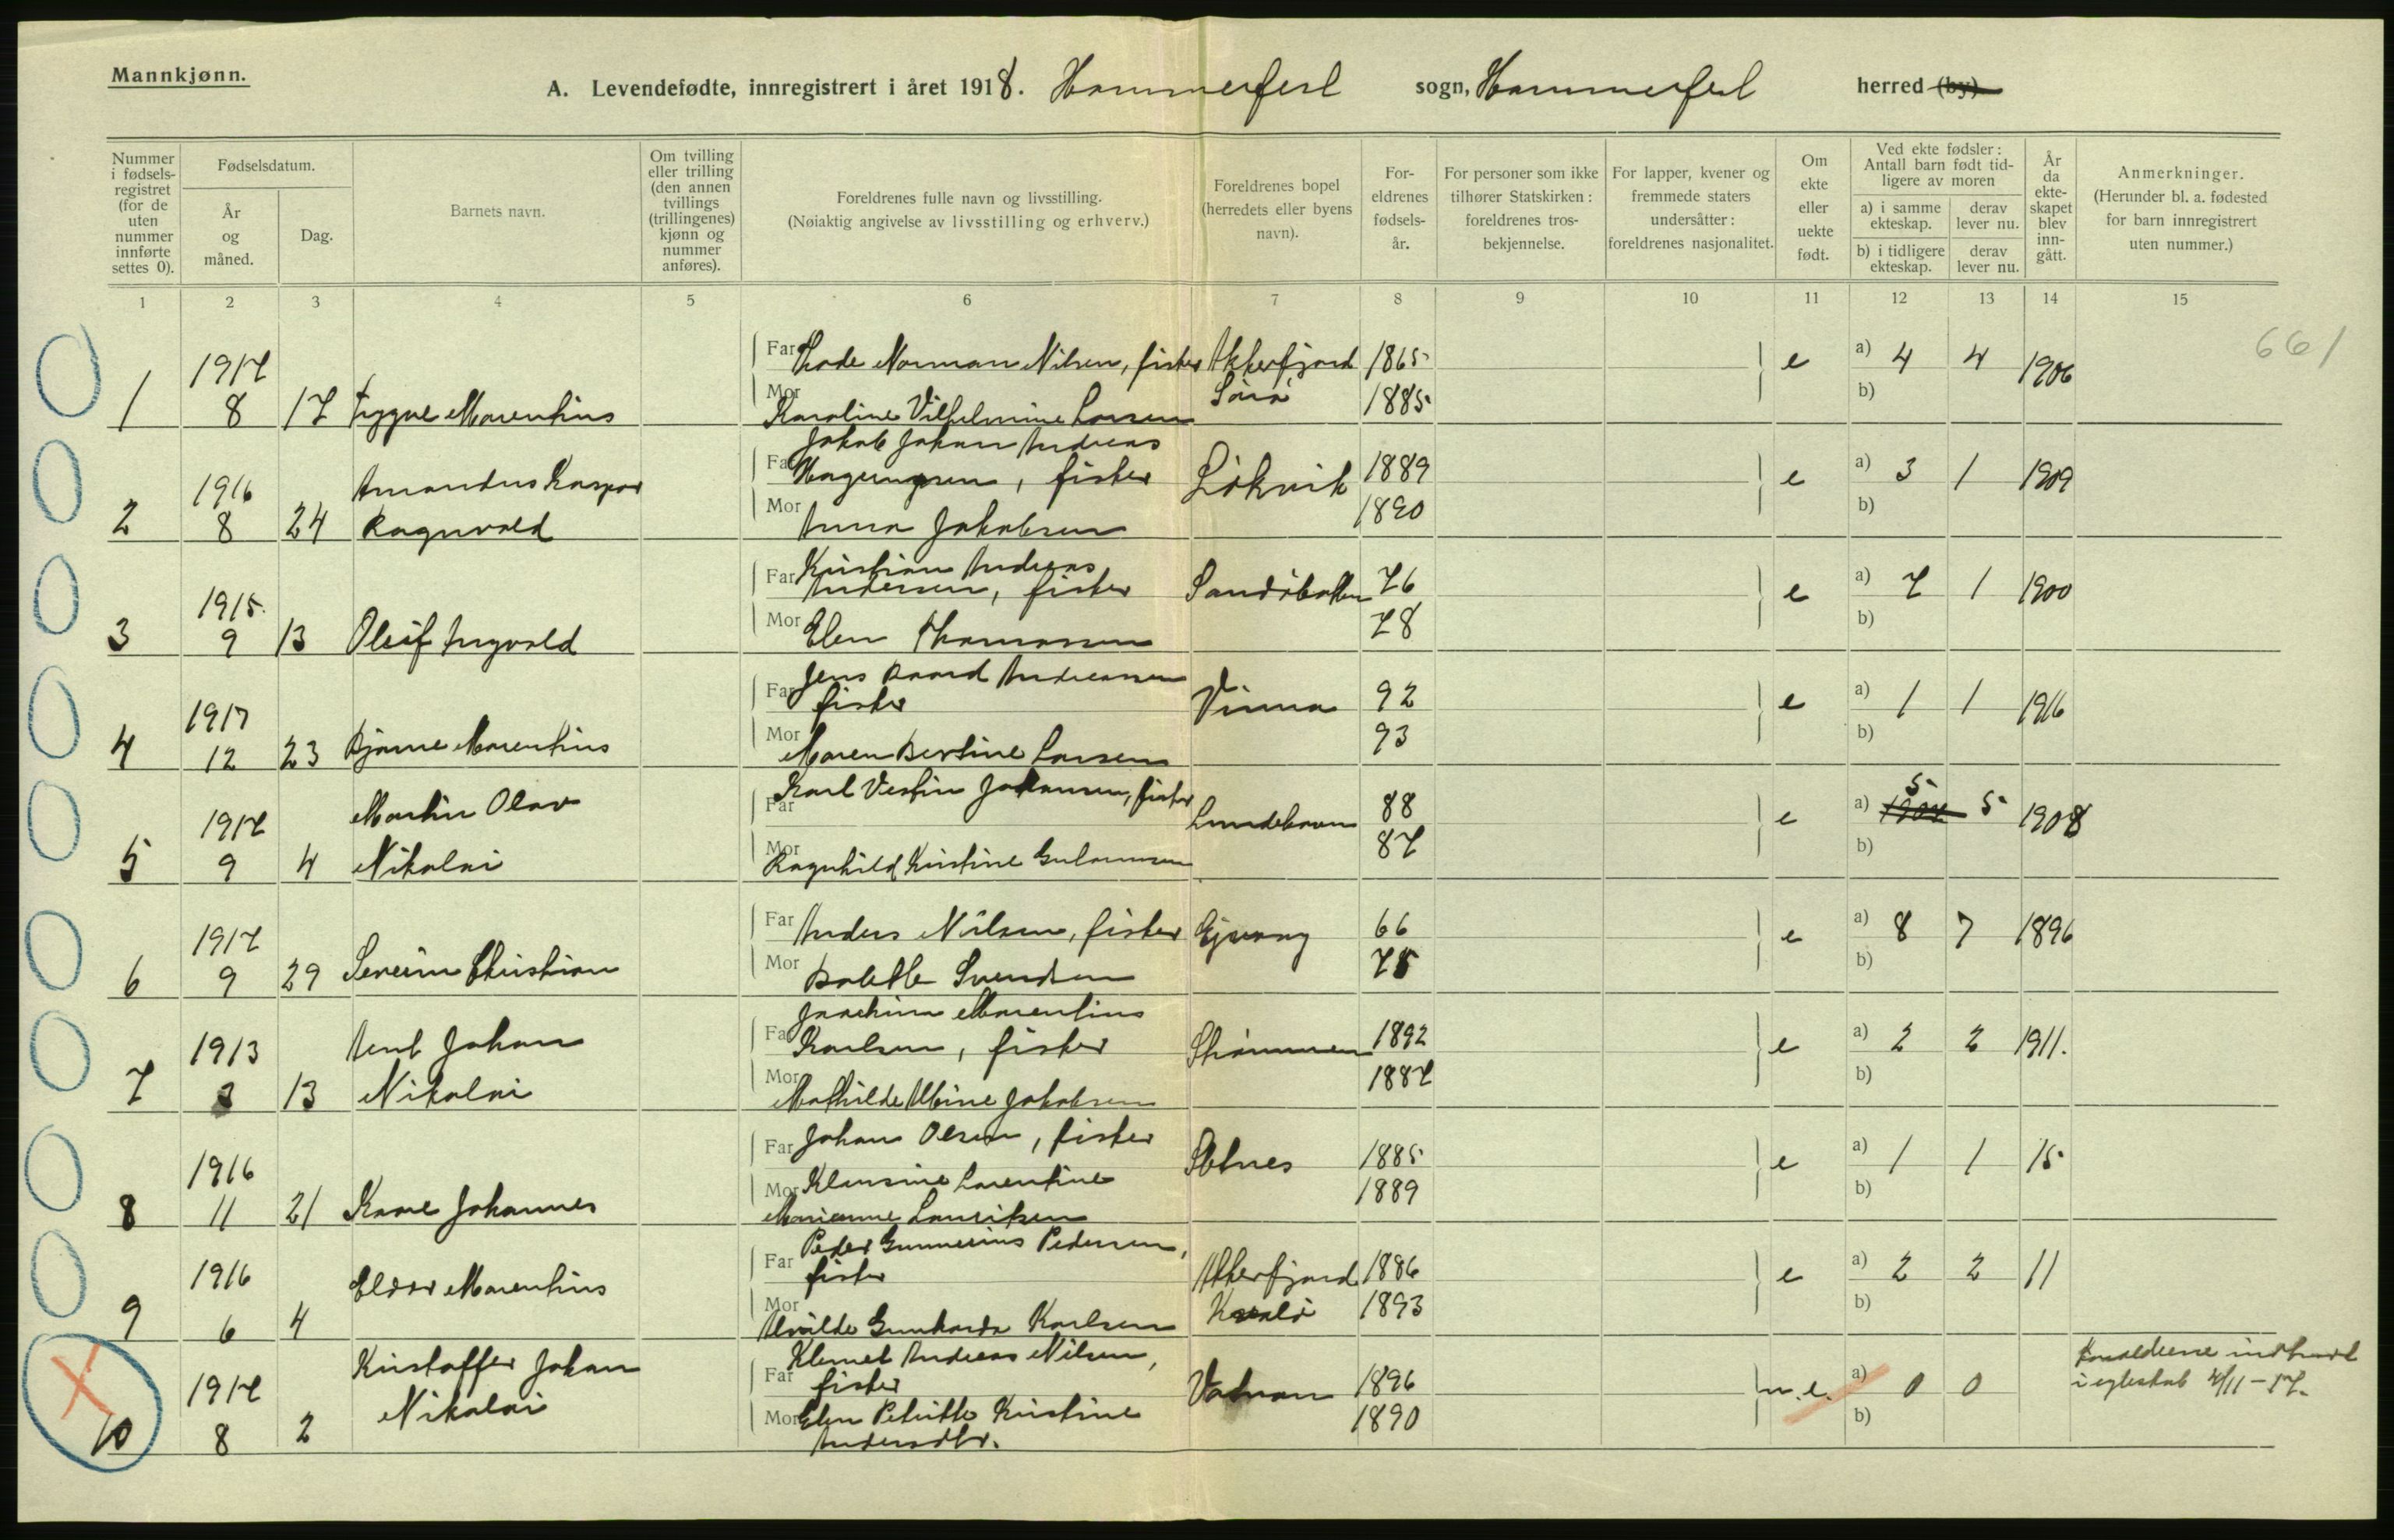 Mannkjønn.
A. Levendefødte, innregistrert i året 1918. Hammerfest sogn, Hammerfest herred (by)
Nummer i fødsels-registret (for de uten nummer innførte settes 0).
Fødselsdatum.
År og måned.
Dag.
Barnets navn.
Om tvilling eller trilling (den annen tvillings (trillingenes) kjønn og nummer anføres).
Foreldrenes fulle navn og livsstilling.
(Nøiaktig angivelse av livsstilling og erhverv.)
Foreldrenes bopel (herredets eller byens navn).
For-eldrenes fødsels-år.
For personer som ikke tilhører Statskirken: foreldrenes tros-bekjennelse.
For lapper, kvener og fremmede staters undersåtter: foreldrenes nasjonalitet.
Om ekte eller uekte født.
Ved ekte fødsler: Antall barn født tid-ligere av moren
a) i samme ekteskap.
derav lever nu.
b) i tidligere ekteskap.
derav lever nu.
År da ekte-skapet blev inn-gått.
Anmerkninger.
(Herunder bl. a. fødested for barn innregistrert uten nummer.)
1 2 3 4 5 6 7 8 9 10 11 12 13 14 15
661
1 1917 8 17 Trygve Marentius
Far Norman Nilsen, fisker Akkerfjord 1865 e a) 4 4 1906
Mor Karoline Vilhelmine Larsen Sørø 1885 b)
2 1916 8 24 Amandus Kaspar Ragnvald
Far Jakob Johan Andreas
Magnungsen, fisker Løkvik 1889 e a) 3 1 1909
Mor Anna Jakobsen 1890 b)
3 1915 9 13 Oleif Ingvald
Far Kristian Andreas
Andersen, fisker Sandøbotten 76 e a) 7 1 1900
Mor Elen Thomassen 78 b)
4 1917 12 23 Bjarne Marentius
Far Jens Andreassen
fisker Vinna 92 e a) 1 1 1916
Mor Maren Bertine Larsen 93 b)
5 1917 9 4 Martin Olav Nikolai
Far Karl Vestin Johansen, fisker Lundehavn 88 e a) 5 5 1908
Mor Ragnhild Kristine 87 b)
6 1917 9 29 Severin Christian
Far Anders Nilsen, fisker 66 e a) 8 7 1896
Mor Bolette Svendsen 75 b)
7 1913 3 13 Arnt Johan Nikolai
Far Joachim Marentius
Karlsen, fisker Strømmen 1892 e a) 2 2 1911.
Mor Mathilde Albine Jakobsen 1887 b)
8 1916 11 21 Kaare Johannes
Far Johan Olsen, fisker Sletnes 1885 e a) 1 1 15
Mor Klemsine Larentine
Marianne Lauritsen 1889 b)
9 1916 6 4 Eldor Marentius
Far Peder Gunnerius Pedersen,
fisker Akkerfjord 1886 e a) 2 2 11
Mor Alvilde Gunharda Karlsen Kvalø 1893 b)
10 1917 8 2 Kristoffer Johan Nikolai
Far Klemet Andreas Nilsen,
fisker 1896 u.e. a) 0 0
Mor Elen Petritte Kristine
Andersdtr. 1890 b)
Foreldrene indtraadt
i egteskab 4/11-17.